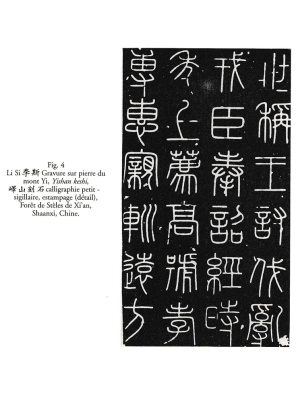 Fig. 4
Li Si 李斯 Gravure sur pierre du
mont Yi, Yishan keshi,
嶧山刻石 calligraphie petit -
sigillaire, estampage (détail),
Forêt de Stèles de Xi'an,
Shaanxi, Chine.
世稱王討伐亂
戎臣奉詔經時
年上薦高號孝
專惠親巡遠方